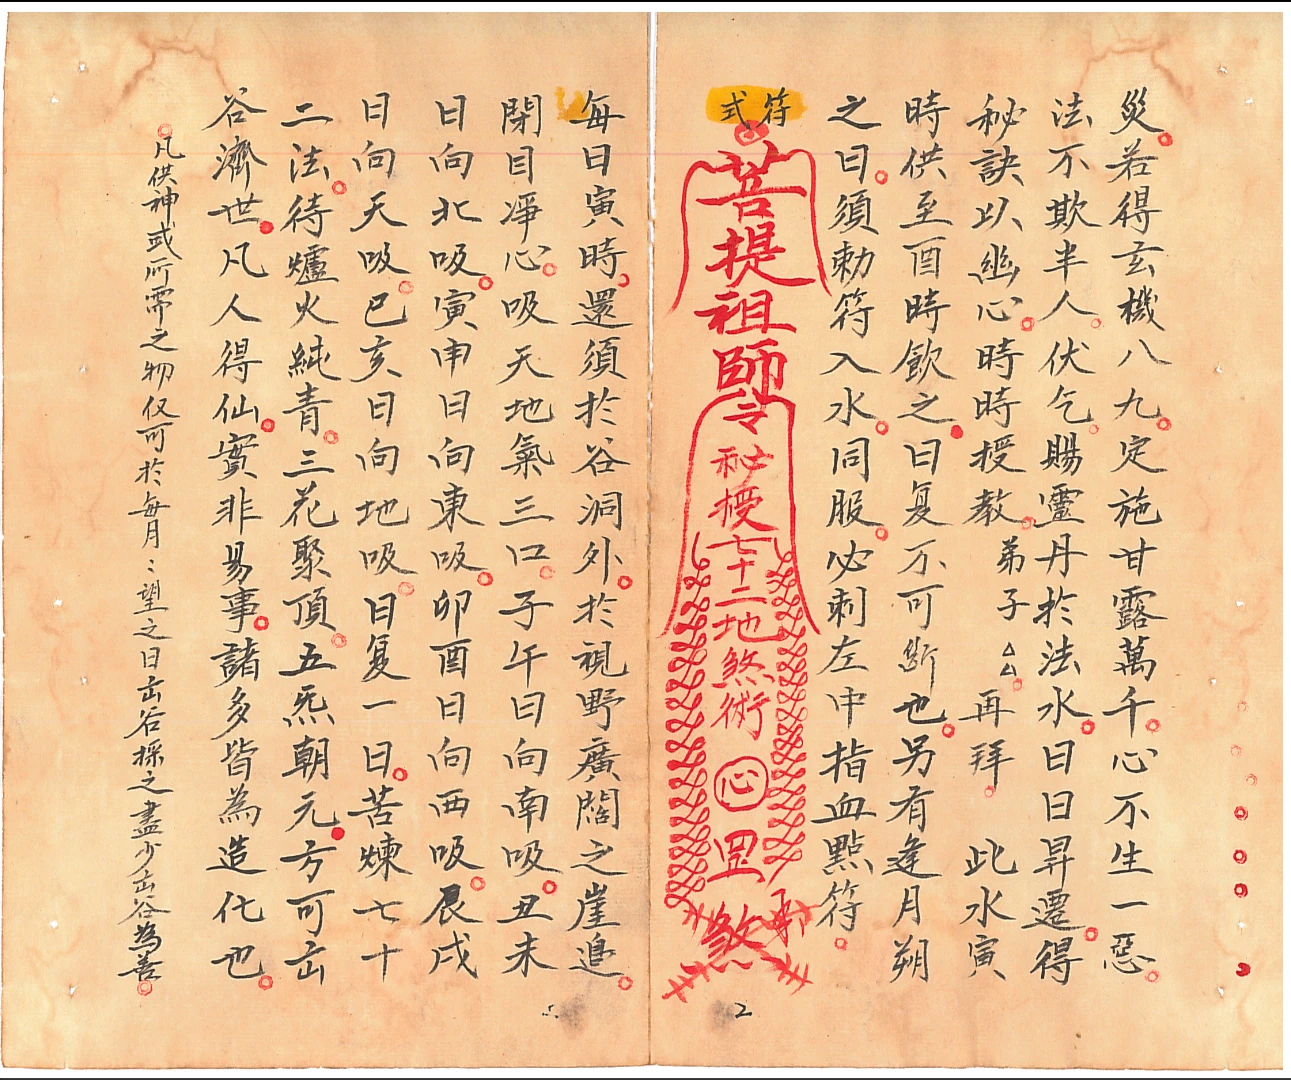 災。若得玄機八九。定施甘露萬千。心不生一惡。
法不欺半人。伏乞。賜靈丹於法水。日日昇遷。得
秘訣以幽心。時時授教。弟子△△。再拜。此水寅
時供至酉時飲之。日复不可斷也。另有逢月朔
之日。須勅符入水。同服。必刺左中指血點符。
符式
菩提祖師
令
秘授七十二地煞術
心
罡
煞
每日寅時。還須於谷洞外。於視野廣闊之崖邊。
閉目凈心。吸天地氣三口。子午日向南吸。丑未
日向北吸。寅申日向東吸。卯酉日向西吸。辰戌
日向天吸。巳亥日向地吸。日复一日。苦煉七十
二法。待爐火純青。三花聚頂。五炁朝元。方可出
谷濟世。凡人得仙。實非易事。諸多皆為造化也。
。凡供神或所需之物仅可於每月:望之日出谷採之盡少出谷為善。
2